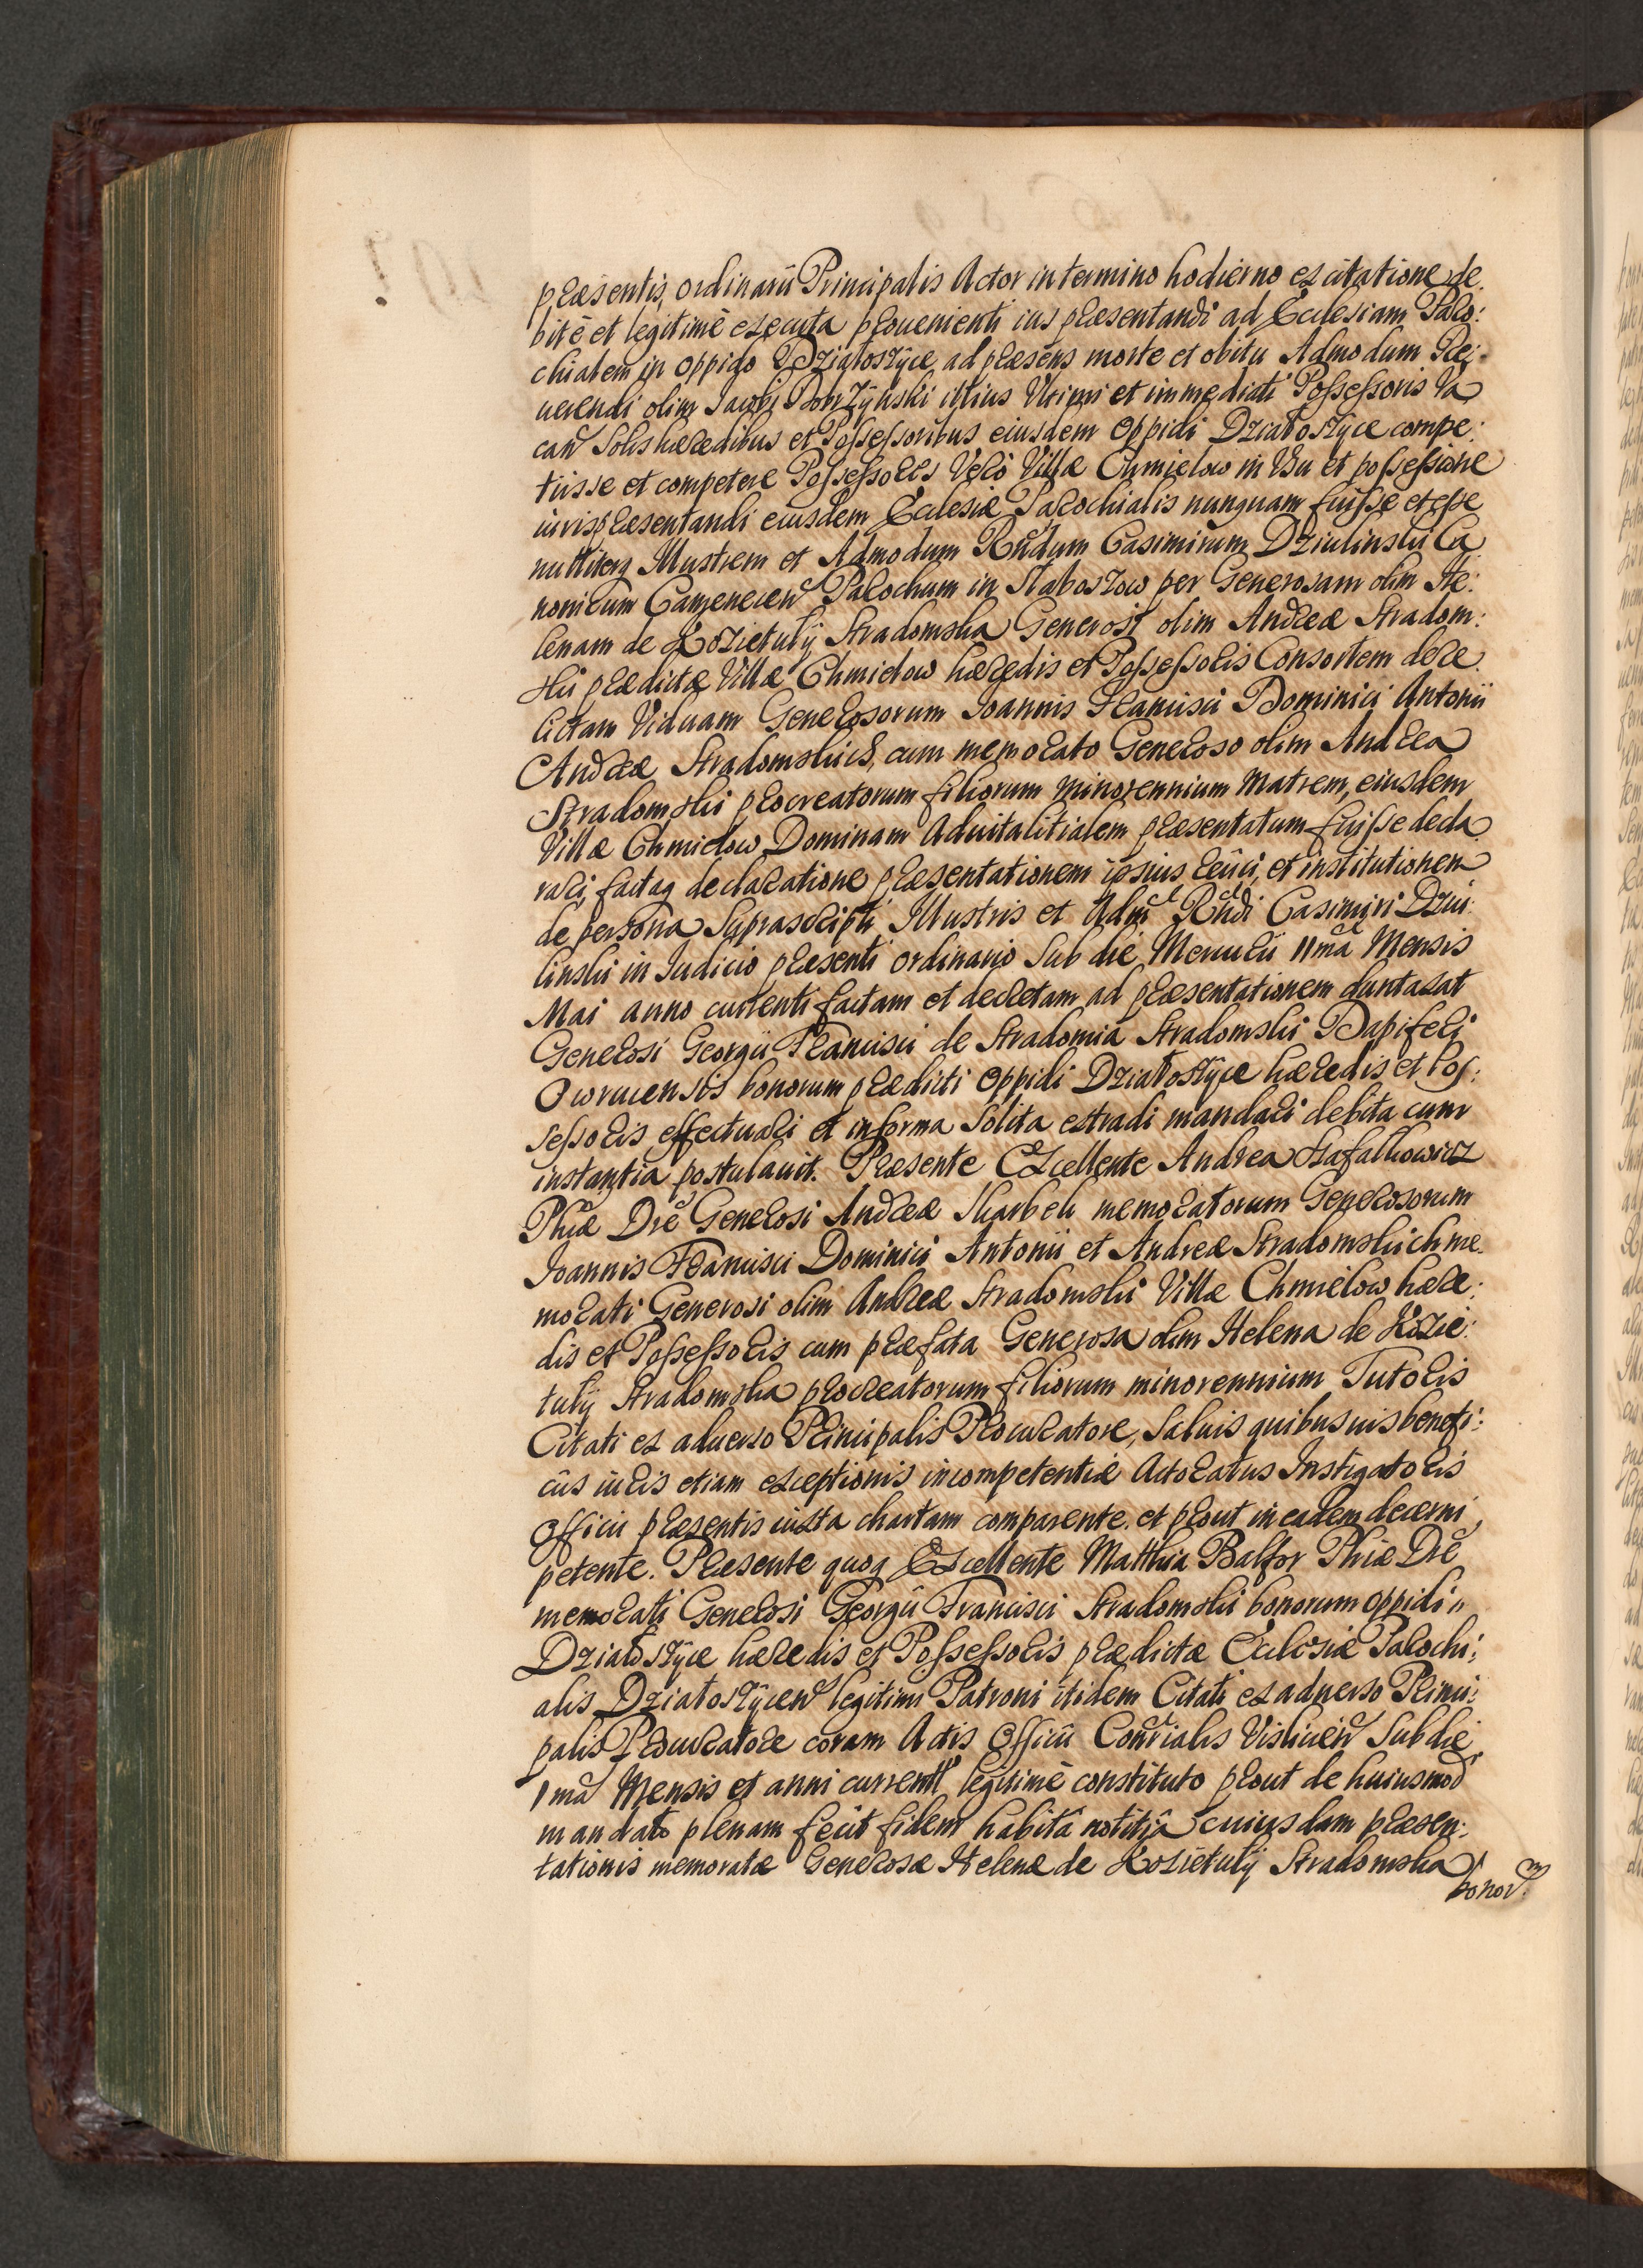 præsentis, ordinarii Principalis Actor in termino hodierno ex citatione de:
bitè et legitimè executa provenienti ius præsentandi ad Ecclesiam Paro:
chialem in oppido Dziatoszÿce ad præsens morte et obitu Admodum Re:
uerendi olim Jacobi Dobrzÿnski illius Vltimi et immediati Possessoris Va
can̄ Solis hæredibus et Possessoribus eiusdem Oppidi Dziatoszÿce compe:
tiisse et competere Possessores Verò Villæ Chmielow in Vsu et possessione
iuris præsentandi eiusdem Ecclesiæ Parochialis nunquam fuisse et esse
nulliterq Illustrem et Admodum Rn̄dum Casimirum Dziulinski Ca
nonicum Camenecen̄ Parochum in Staboszow per Generosam olim He:
lenam de Kozietulÿ Stradomska Generosi olim Andreæ Stradom:
ski prædictæ Villæ Chmielow hæredis et Possessoris Consortem dere
lictam Viduam Generosorum Joannis Francisci Dominici Antonii
Andreæ Stradomskich, cum memorato Generoso olim Andrea
Stradomski procreatorum filiorum minorennium Matrem, eiusdem
Villæ Chmielow Dominam Aduitalitialem præsentatum fuisse decla
rari, factaq declaratione præsentationem ipsius reiici, et institutionem
de persona Suprascripti Illustris et Adm̄ Rn̄di Casimiri Dziu:
linski in Judicio præsenti ordinario Sub die Mercurii 11mâ Mensis
Mai anno currenti factam et decretam ad præsentationem duntaxat
Generosi Georgii Francisci de Stradomia Stradomski Dapiferi
Owrucensis bonorum prædicti oppidi Dziatoszÿce hæredis et Pos:
sessoris effectuari et in forma Solita extradi mandari debita cum
instantia postulauit. Præsente Excellente Andrea Rafalkowicz
Phiæ Dre Generosi Andreæ Skarbek memoratorum Generosorum
Joannis Francisci Dominici Antonii et Andreæ Stradomskich me
morati Generosi olim Andreæ Stradomski Villæ Chmielow hære:
dis et Possessoris cum præfata Generosa olim Helena de Kozie:
tulÿ Stradomska procreatorum filiorum minorennium Tutoris
Citati ex aduerso Principalis Procuratore, Saluis quibusuis benefi:
ciis iuris etiam exceptionis incompetentiæ Actoratus Instigatoris
Officii præsentis iuxta chartam comparente. et prout in eadem decerni
petente. Præsente quoq Excellente Matthia Balfor Phiæ Dre
memorati Generosi Georgii Francisci Stradomski bonorum oppidi
Dziatoszÿce hæredis et Possessoris prædictæ Ecclesiæ Parochi:
alis Dziatoszÿcen̄ legitimi Patroni itidem Citati ex aduerso Princi:
palis Procuratore coram Actis Officii Con̄rialis Vislicien̄ Sub die
1mâ Mensis et anni currentt legitimè constituto prout de huiusmod̄
mandato plenam fecit fidem habitâ notitiâ cuiusdam præsen:
tationis memoratæ Generosæ Helenæ de Kozietulÿ Stradomska
bonor̄